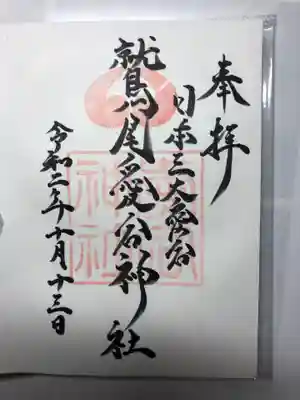 奉拝
日本三大愛宕
鷲尾愛宕神社
令和二年十月十三日